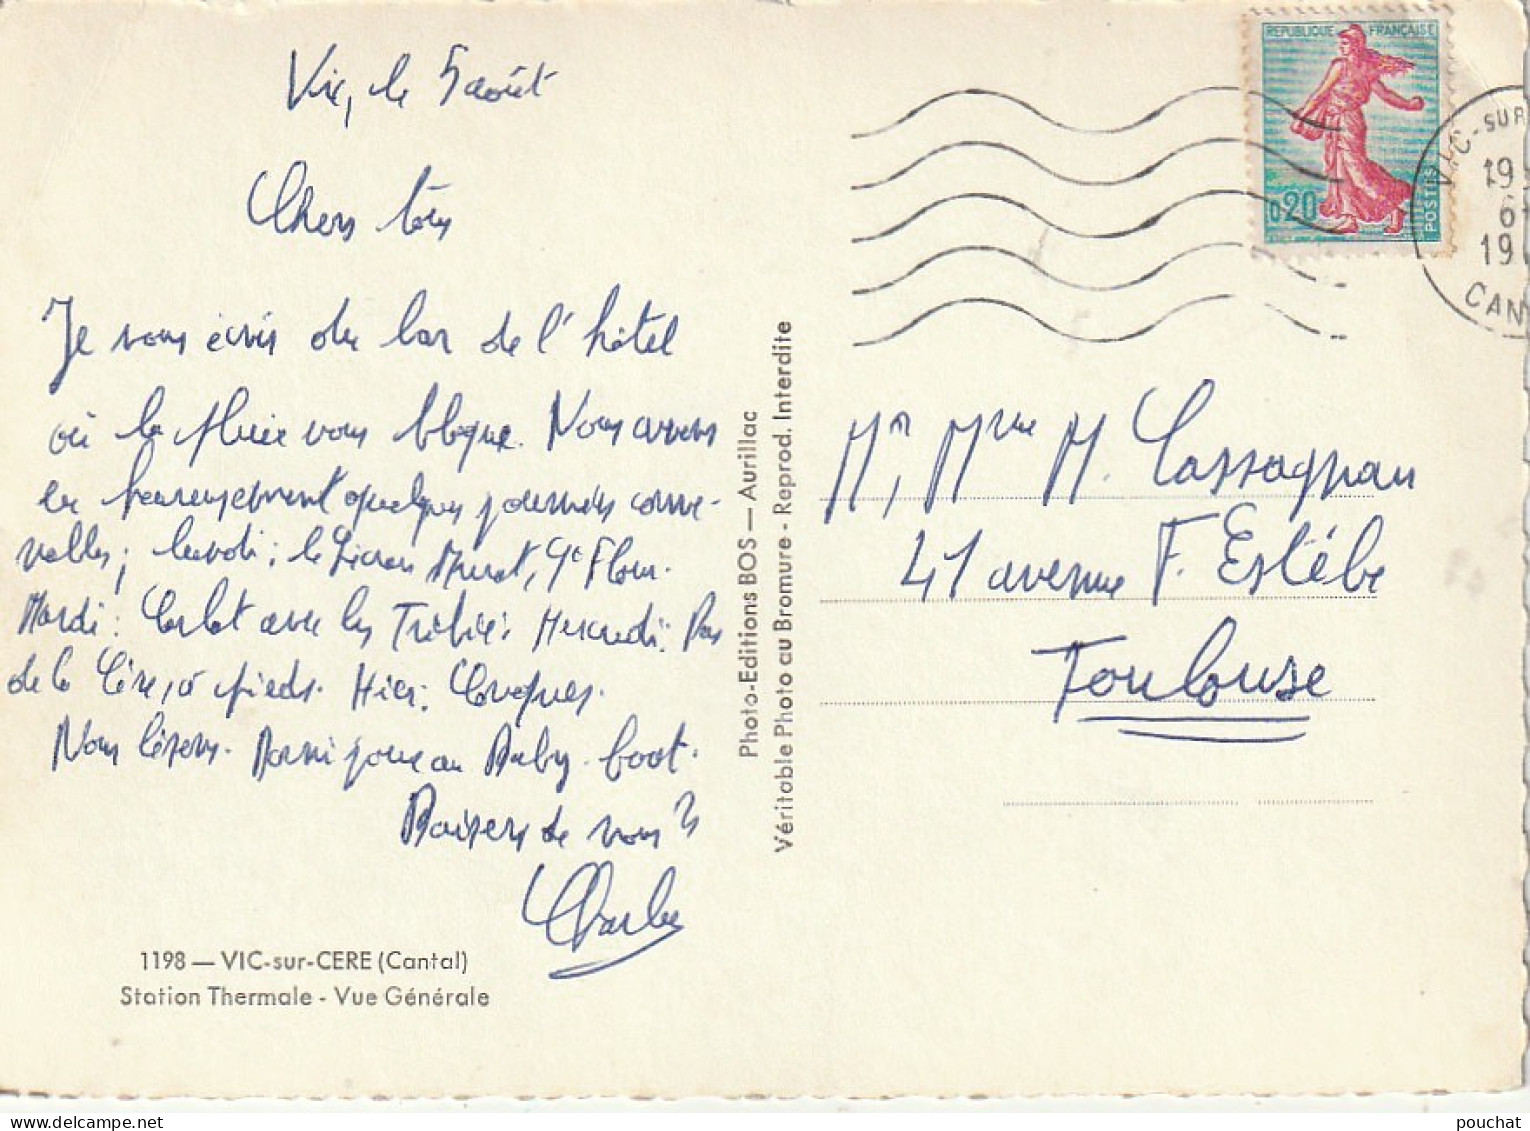 Vic, le 5 août
Chers tous
Je vous écris du bar de l'hôtel
où la pluie nous bloque. Nous avons
eu heureusement quelques journées conve-
nables; lundi: le Lioran Murat, St Flour.
Mardi: Carlat avec les Mercredi: Pas
de la Cère, à pieds. Hier:
Nous lisons. joue au Baby-foot.
Baisers de nous 3
1198 — VIC-sur-CERE (Cantal)
Station Thermale - Vue Générale
Photo-Editions BOS — Aurillac
Véritable Photo au Bromure - Reprod. Interdite
REPUBLIQUE FRANÇAISE
0,20
POSTES
VIC-SUR
19
6
19
CAN
Mr, Mme M. Cassagnau
41 avenue F. Estèbe
Toulouse
pouchat